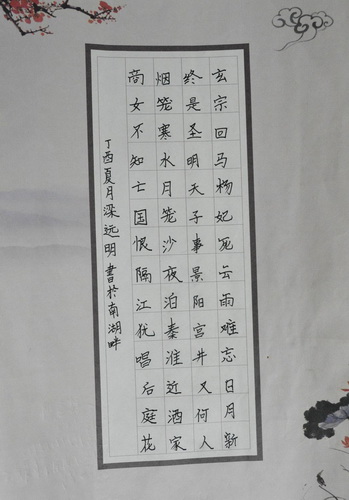 玄宗回马杨妃冤云雨难忘日月新
终是圣明天子事景阳宫井又何人
烟笼寒水月笼沙夜泊秦淮近酒家
商女不知亡国恨隔江犹唱后庭花
丁酉夏月梁远明書於南湖畔